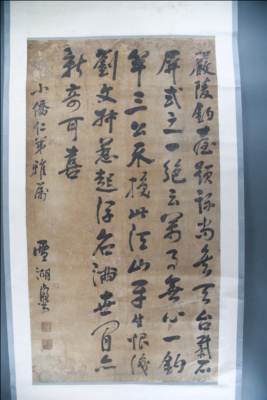 嚴陵釣臺題詠尚矣天台戴石
屏式之一絕云萬事無心一釣
竿三公不換此江山平生恨識
劉文叔惹起浮名滿世間亦
新奇可喜
小僑仁弟雅屬
雪湖